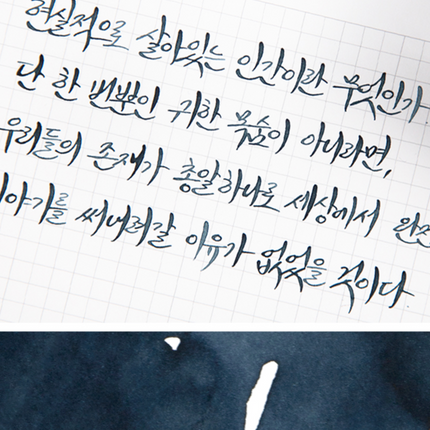 현실적으로 살아있는 인간이란 무엇인가.
단 한 번뿐인 귀한 목숨이 아니라면,
우리들의 존재가 총알 하나로 세상에서 완전
이야기를 써내려갈 이유가 없었을 것이다